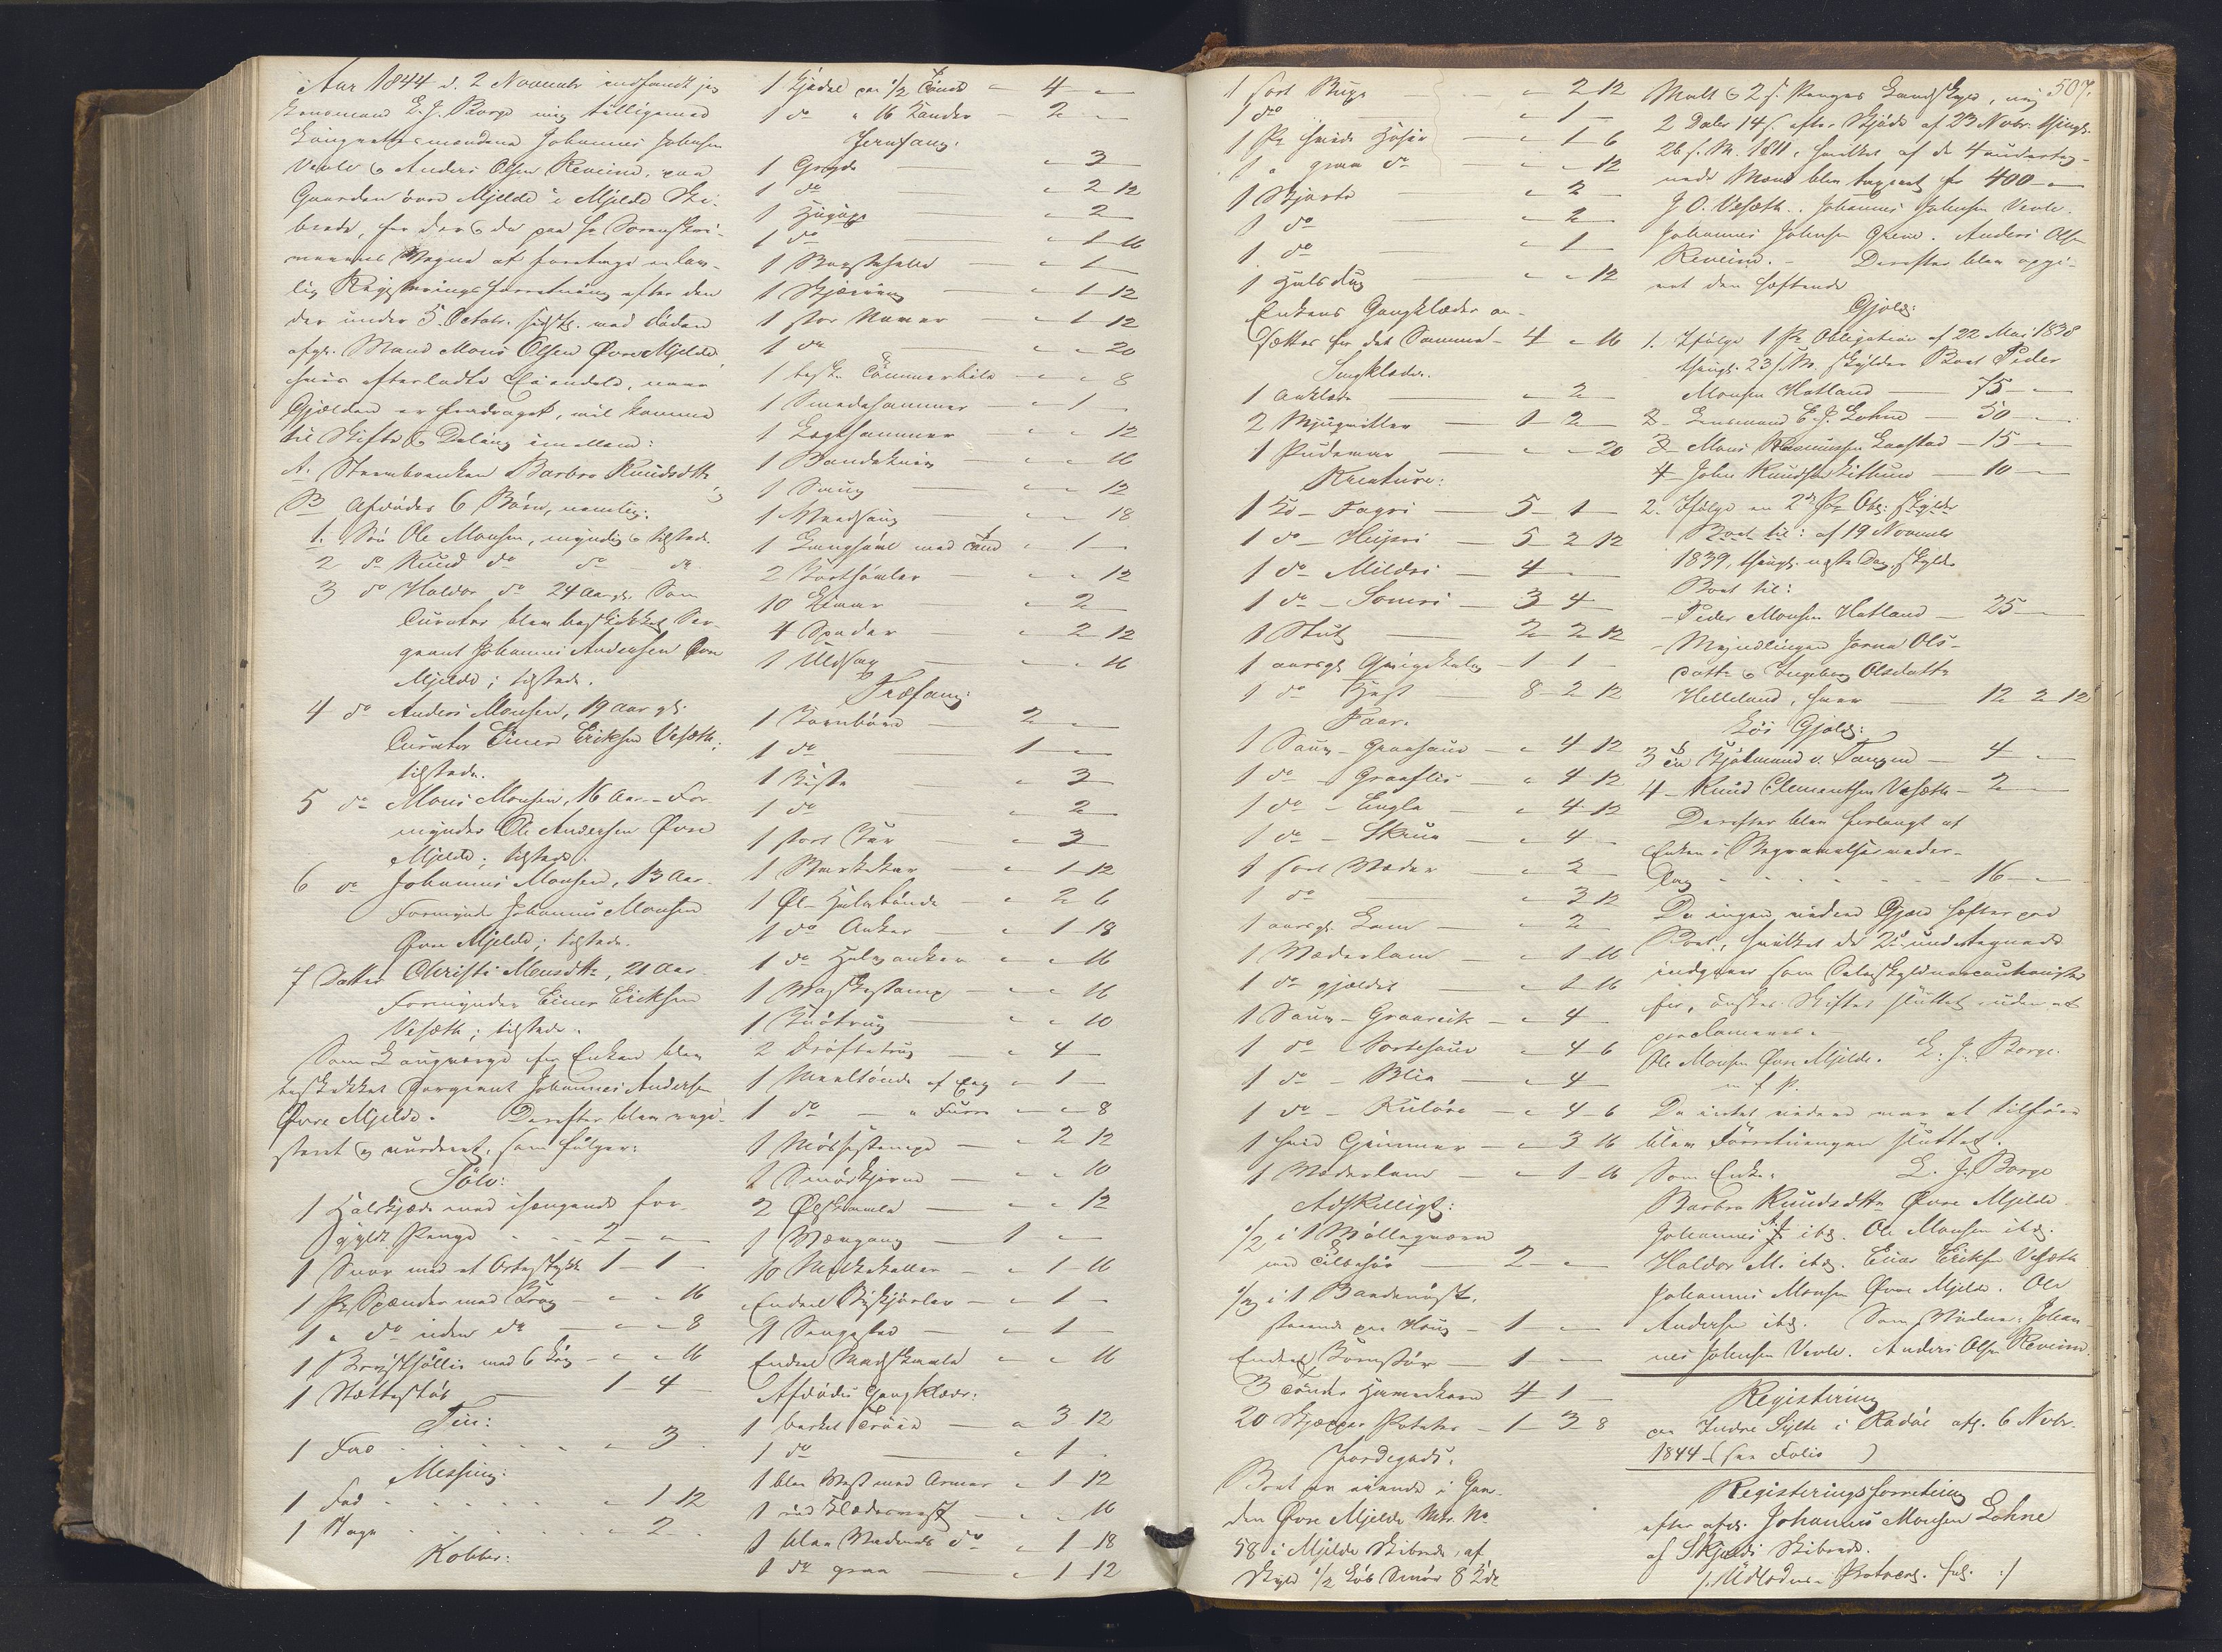 Aar 1844 d. 2 November indfandt jeg
Lensmand L. J. Borge mig tilligemed
Laugrettesmændene Johannes Johnsen
Vevle og Anders Olsen Reveim, paa
Gaarden övre Mjelde i Mjelde Ski-
brede, for der og da paa Hr Sorenskri-
verens Vegne at foretage en lov-
lig Registreringsforretning efter den
der under 5 Octobr. sidstl. ved Döden
afg. Mand Mons Olsen Övre Mjelde
hvis efterladte Eiendele, naar
Gjælden er fradraget, vil komme
til Skifte og Deling imellem:
A. Stervboenken Barbro Knudsdtr og
B Afdödes 6 Börn, nemlig:
1. Sön Ole Monsen, myndig og tilstede.
2 do Knud do do do
3 do Haldor do 24 Aar gl. Som
Curator blev beskikket Ser-
geant Johannes Andersen Övre
Mjelde; tilstede.
4 do Anders Monsen, 19 Aar gl.
Curator Einer Eriksen Veseth;
tilstede.
5 do Mons Monsen, 16 Aar - For-
mynder Ole Andersen Övre
Mjelde; tilstede.
6 do Johannes Monsen, 13 Aar.
Formynder Johannes Monsen
Övre Mjelde; tilstede.
7 Datter Christi Monsdtr, 21 Aar.
Formynder Einer Eriksen
Veseth; tilstede.
Som Laugværge for Enken blev
beskikket Sergeant Johannes Andersen
Övre Mjelde. Derefter blev regi-
streret og vurderet, som fölger:
Sölv:
1 Halskjæde med ihængende for-
gyldt Penge - 2 - "
1 Snor med et Ortestykke 1 - 1 -
1 Pr Spænder med Krog - " - " 16
1 " do uden do - " - " 8
1 Brystsöllie med 6 Löv - " - " 16
1 Hættestöb 1 - 4 -
Tin:
1 Fad " 3
Messing:
1 Fad " 1 12
1 Stage " 2
Kobber:
1 Kjedel paa 1/2 Tönde - 4 - "
1 do " 16 Kander - 2 -
Jernfang:
1 Gryde - " 3 -
1 do - " 2 12
1 Hugöxe - " 2
1 do - " 1 16
1 " 1
1 Skjærin - " 1 12
1 stor Naver - " 1 12
1 do - " " 20
1 Tömmerbile - " " 8
1 Smedehammer - " 1 -
1 Lægthammer - " " 12
1 Baandekniv - " " 16
1 Saug - " " 12
1 " " 18
1 " 1 -
2 " " 12
10 Limar - " 2
4 Spader - " 2 12
1 Uldsax - " " 16
Træfang:
1 Kornbörn - 2 - "
1 do - 1 - "
1 Kiste - " 3
1 do - " 2
1 stort Kar - " 3
1 Værkekar - " 1 12
1 Öl-Halvtönde - " 2 6
1 do Anker - " 1 18
1 do Halvanker - " " 16
1 Vaskestamp - " " 16
1 " " 10
2 Dröftetrug - " 4
1 Meeltönde af Eeg " 1 -
1 do - " Furre - " 8
1 " 2 12
1 Smörkjerne - " " 10
2 Ölskaale - " " 12
1 Vævgang - 1 "
10 Melkekoller - " 1 16
Endeel " 1 -
1 Sengested - " 1 -
Endeel Madskaale " " 16
Afdödes Gangklæder:
1 Tröie - " 3 12
1 do - " 1
1 blaa Vest med Armer " 1 12
1 rød Klædesvest - " " 16
1 blaa Vadmels do - " 1 18
1 do graa - " 1 12
1 sort Buxe - " 2 12
1 do - " 1 -
1 Pr hvide Hoser - " 1 6
1 " graa do - " " 12
1 Skjorte - " 2
1 do - " 2
1 do - " 1
1 Halsdug - " " 12
Enkens Gangklæder an-
sættes for det Samme - 4 " 16
Sengklæder.
1 Aaklæde - " 2
2 1 2 -
1 Pudevaar - " " 20
Kreature:
1 Ko - Fagri - 5 - 1 -
1 do - Hujssi - 5 2 12
1 do - Mildri - 4 - "
1 do - Somri - 3 4
1 Stut - 2 2 12
1 aarsgl. Qvigekalv - 1 1 -
1 do Hest - 8 - 2 12
Faar.
1 Sau - Graasau - " 4 12
1 do - Graaflis - " 4 12
1 do - Engla - " 4 12
1 do - Skrua - " 4
1 sort Væder - " 2
1 do - " 3 12
1 aarsgl. Lam - " 2
1 Væderlam - " 1 16
1 do gjældet - " 1 16
1 Sau - Graareik - " 4
1 do - Sortesaue " 4 6
1 do - Blia - " 4
1 do - Kulöre - " 4 6
1 hvid Gimmer - " 3 16
1 Væderlam - " 1 16
Adskilligt:
1/2 i 1 Möllequærn
med Tilbehör - 2 - "
1/2 i 1 Baadenöst,
staaende paa Houg - 1 - "
Endeel Kornstör - 1 - "
3 Tönder Havrekorn 4 1 -
20 Skjæpper Poteter - 1 3 8
Jordegods.
Boet er eiende i Gaar-
den Övre Mjelde Mtr. No
58 i Mjelde Skibrede, af
Skyld 1/2 Löb Smör 8 Kdr
507.
Malt og 2 s. Penges Landskyld, ny
2 Daler 14 s. efter Skjöde af 23 Novbr. thingl.
26 s. M. 1811, hvilket af de 4 underteg-
nede Mænd blev taxeret for 400 - "
J. O. Veseth. Johannes Johnsen Vevle.
Johannes Johnsen Anders Olsen
Reveim. - Derefter blev opgi-
vet den hæftende
Gjeld:
1. Ifölge 1 Pr. Obligation af 22 Mai 1838
thingl. 23 s. M. skylder Boet Peder
Monsen Hatland - 75 - "
2 - Lensmand E. J. Lohne - 50 - "
3 - Mons Rasmussen Kaastad - 15 - "
4 - John Knudsen - 10 - "
2. Ifölge en 2den Pr. Obl: skylder
Boet til: af 19 November
1839, thingl. næste Dag, skylder
Boet til:
- Peder Monsen Hatland - 25 - "
- Myndlingen Jorna Ols-
datter og Ingeborg Olsdatter
Helleland, hver - 12 2 12
Lös Gjeld:
3 til Kjöbmand v. Tangen - 4 - "
4 - Knud Clementsen Veseth - 2 - "
Derefter blev forlangt af
Enken i Begravelsesveder-
lag - 16 - "
Da ingen videre Gjeld hæfter paa
Boet, hvilket de 2de undertegnede
indgaaer som Selvskyldnercautionister
for, önskes Skiftet sluttet uden at
proclameres.
Ole Monsen Övre Mjelde. L. J. Borge.
m. f. P.
Da intet videre var at tilföre
blev Forretningen sluttet.
Som Enke: L. J. Borge
Barbro Knudsdtr Övre Mjelde
Johannes A. S. ibd. Ole Monsen ibd.
Haldor M. ibd. Einar Eriksen Veseth
Johannes Monsen Övre Mjelde. Ole
Andersen ibd. Som Vidner: Johan-
nes Johnsen Vevle. Anders Olsen Reveim.
Registering
paa Indre Sylte i Radöe afg. 6 Novbr.
1844 - (see Folio )
Registeringsforretning
efter afdg. Johannes Monsen Lohne
af Skjolds Skibrede.
/: Udlodns. Protocol. fol. :/